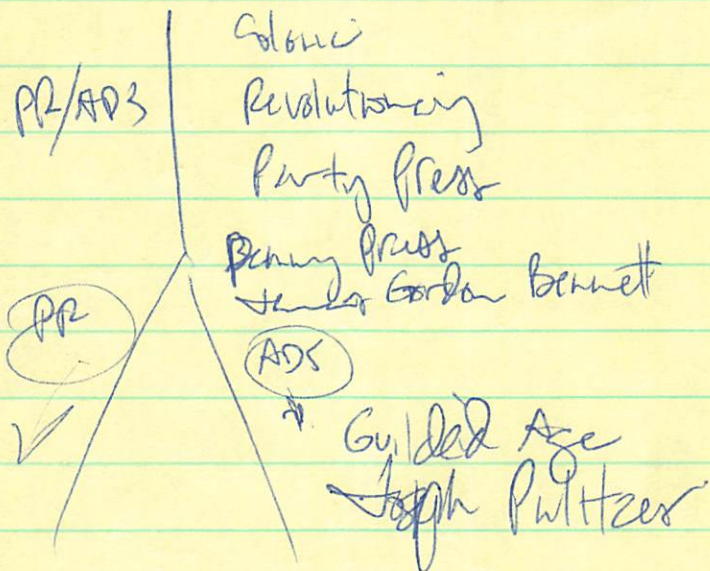 Colonial
PR/ADS
Revolutionary
Party Press
Penny Press
James Gordon Bennett
PR
ADS
Guilded Age
Joseph Pulitzer